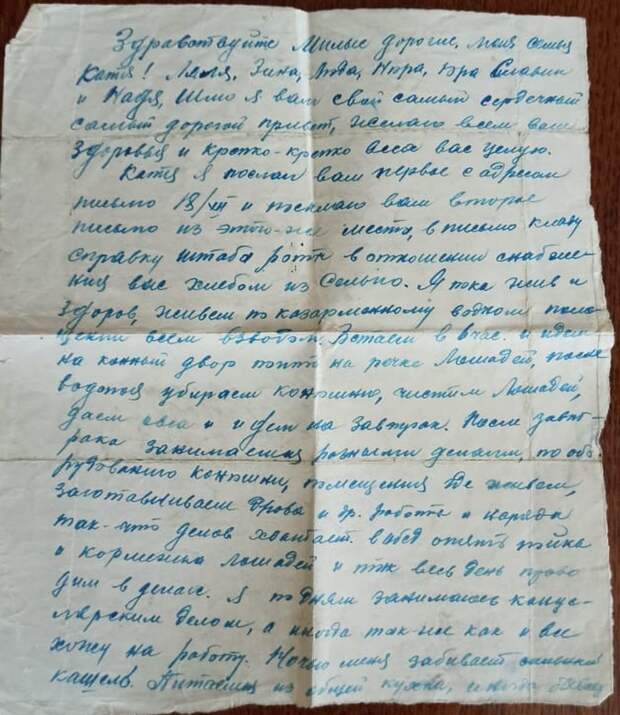 Здравствуйте Милые дорогие, моя семья
Катя! Ляля, Зина, Люда, Нюра, Юра Славик
и Надя, Шлю я вам свой самый сердечный
самый дорогой привет, желаю всем вам
здоровья и крепко-крепко всех вас целую.
Катя я послал вам первое с адресом
письмо 18/VII и посылаю вам второе
письмо из этого-же места, в письмо кладу
справку штаба роты в отношении снабже-
ния вас хлебом из Сельпо. Я пока жив и
здоров, живем по казарменному в одном поме-
щении всем взводом. Встаем в час. и идем
на конный двор поить на речке Лошадей, после
водопоя убираем конюшню, чистим Лошадей,
даем овса и идем на завтрак. После завт-
рака занимаемся разными делами, по обо-
рудованию конюшни, помещения где живем,
заготавливаем дрова и др. работы и наряды
так-что делов хватает. в обед опять пойка
и кормежка лошадей и так весь день прово
дим в делах. Я по дням занимаюсь канце-
лярским делом, а иногда так-же как и все
хожу на работу. Ночью меня забивает сильный
кашель. Питаемся из общей кухни, иногда